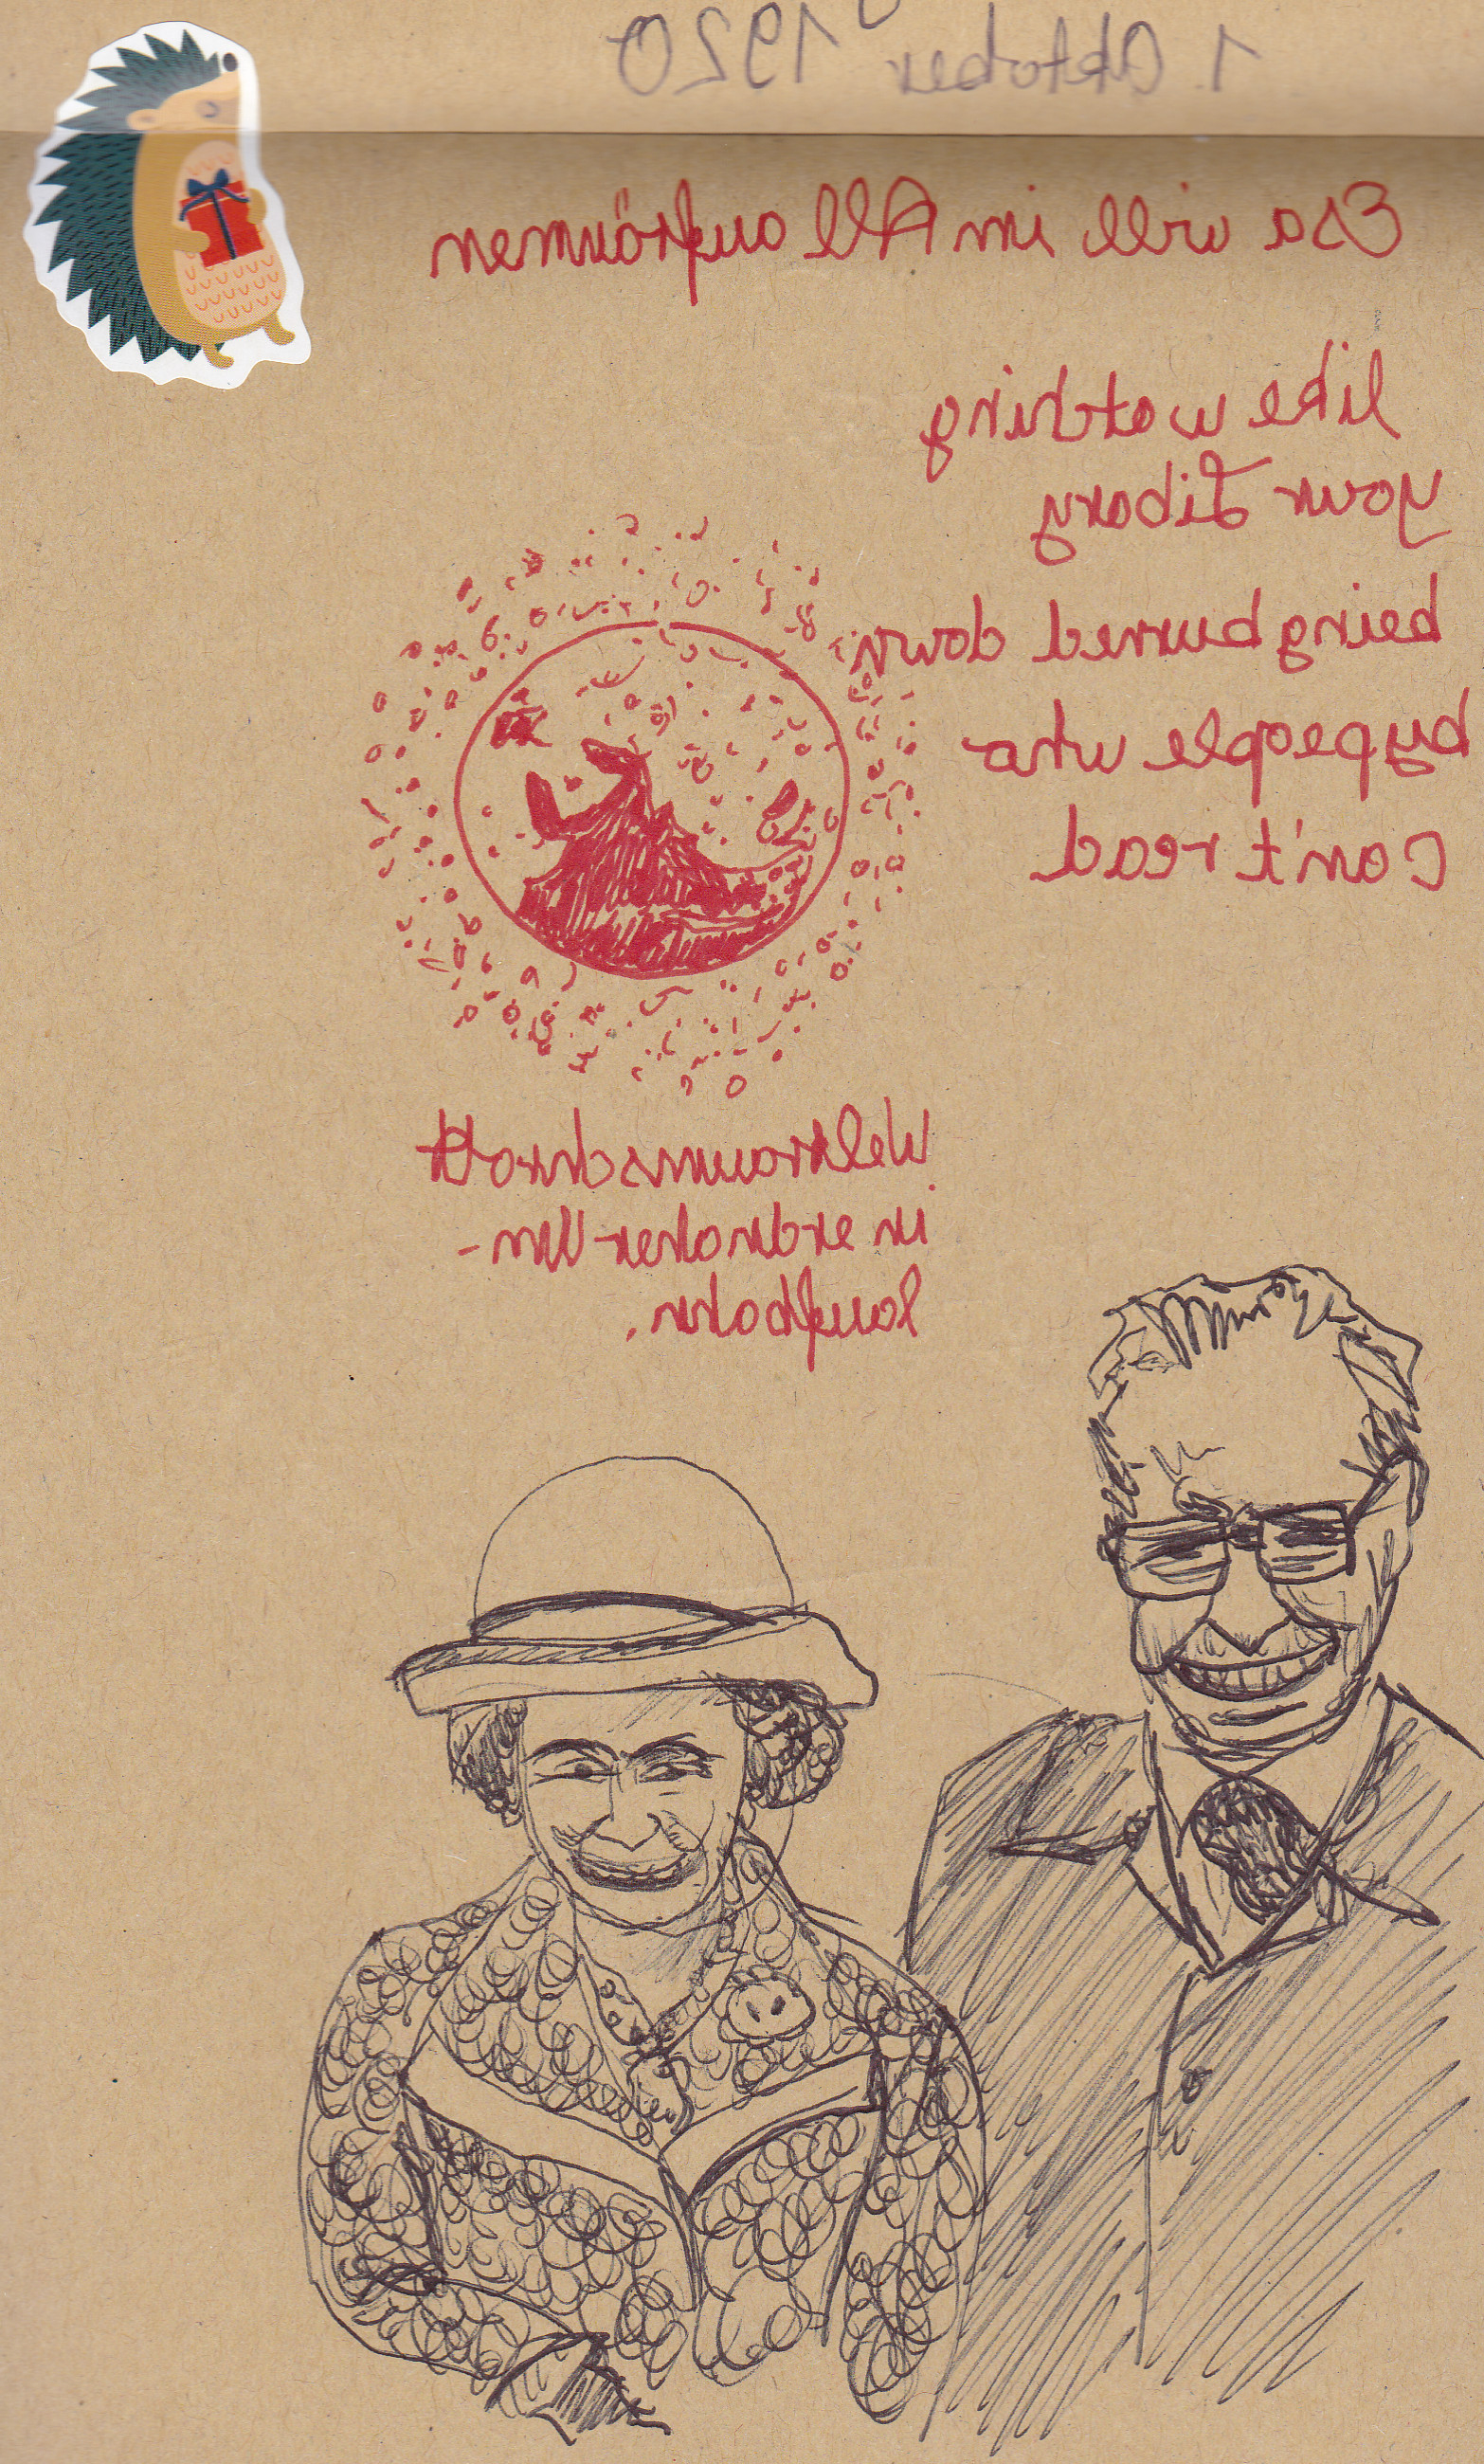 1. Oktober 1920
Esa will im All aufräumen
like watching
your Libary
being burned down
by people who
can't read
Weltraumschrott
in erdnaher Um-
laufbahn.